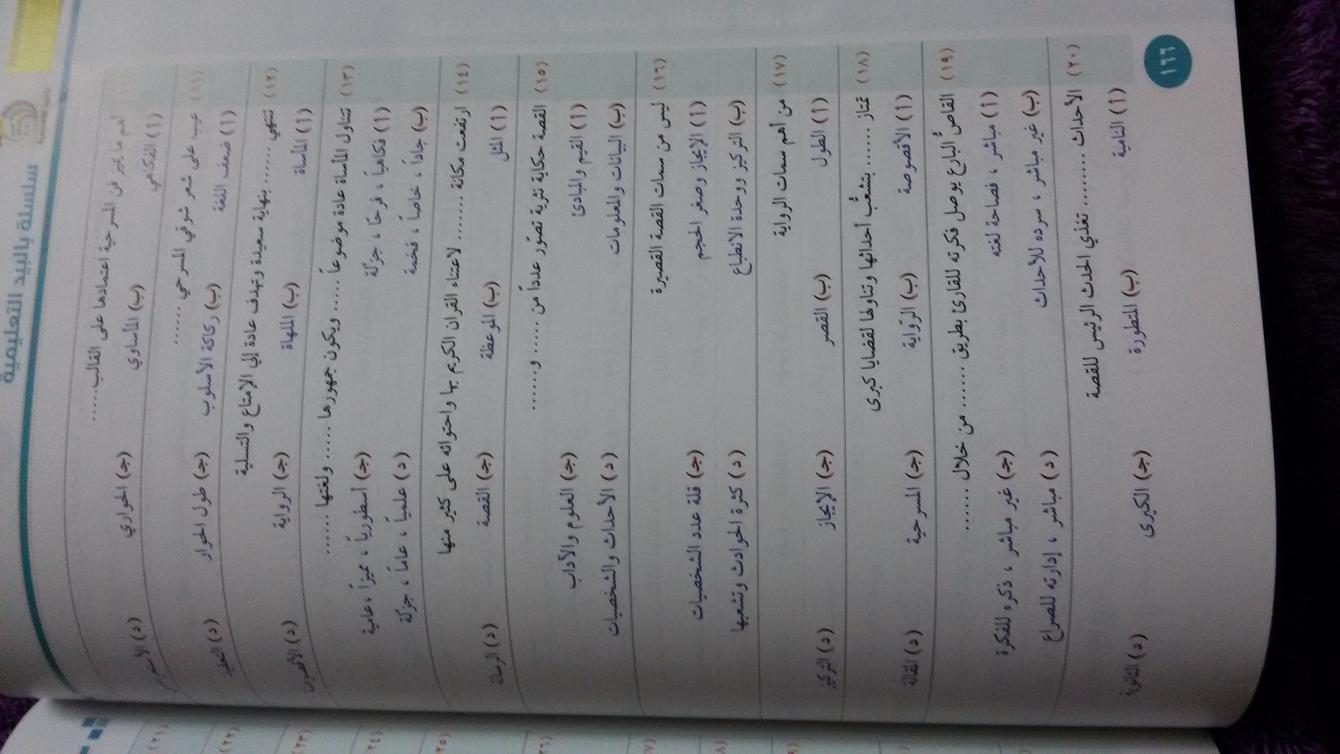 سلسلة بالبيد التعليمية
أهم ما يميز فن المسرحية اعتمادها على القالب ......
(أ) الفكاهي (ب) المأساوي (جـ) الحواري (د)
(١١) عيب على شعر شوقي المسرحي ......
(أ) ضعف اللغة (ب) ركاكة الأسلوب (جـ) طول الحوار (د)
(١٢) تنتهي ....... بنهاية سعيدة وتهدف عادة إلى الإمتاع والتسلية
(أ) المأساة (ب) الملهاة (جـ) الرواية (د)
(١٣) تتناول المأساة عادة موضوعاً ...... ويكون جمهورها ...... ولغتها ......
(أ) فكاهياً ، فرحًا ، جزلة (جـ) أسطورياً ، مميزاً ، عامية
(ب) جاداً ، خاصاً ، فخمة (د) علمياً ، عاماً ، جزلة
(١٤) ارتفعت مكانة ....... لاعتناء القرآن الكريم بها واحتوائه على كثير منها
(أ) المثل (ب) الموعظة (جـ) القصة (د) الرسالة
(١٥) القصة حكاية نثرية تصوّر عدداً من ...... و......
(أ) القيم والمبادئ (جـ) العلوم والآداب
(ب) البيانات والمعلومات (د) الأحداث والشخصيات
(١٦) ليس من سمات القصة القصيرة
(أ) الإيجاز وصغر الحجم (جـ) قلة عدد الشخصيات
(ب) التركيز ووحدة الانطباع (د) كثرة الحوادث وتشعبها
(١٧) من أهم سمات الرواية
(أ) الطول (ب) القصر (جـ) الإيجاز (د) التركيز
(١٨) تمتاز ....... بتشعُّب أحداثها وتناولها لقضايا كبرى
(أ) الأقصوصة (ب) الرواية (جـ) المسرحية (د) المقالة
(١٩) القاصُّ البارع يوصل فكرته للقارئ بطريق ....... من خلال .......
(أ) مباشر ، فصاحة لغته (جـ) غير مباشر ، ذكره للفكرة
(ب) غير مباشر ، سرده للأحداث (د) مباشر ، إدارته للصراع
(٢٠) الأحداث ........ تغذي الحدث الرئيس للقصة
(أ) النامية (ب) المتطورة (جـ) الكبرى (د) الثانوية
١٦٦
(٢١)
(٢٢)
(٢٣)